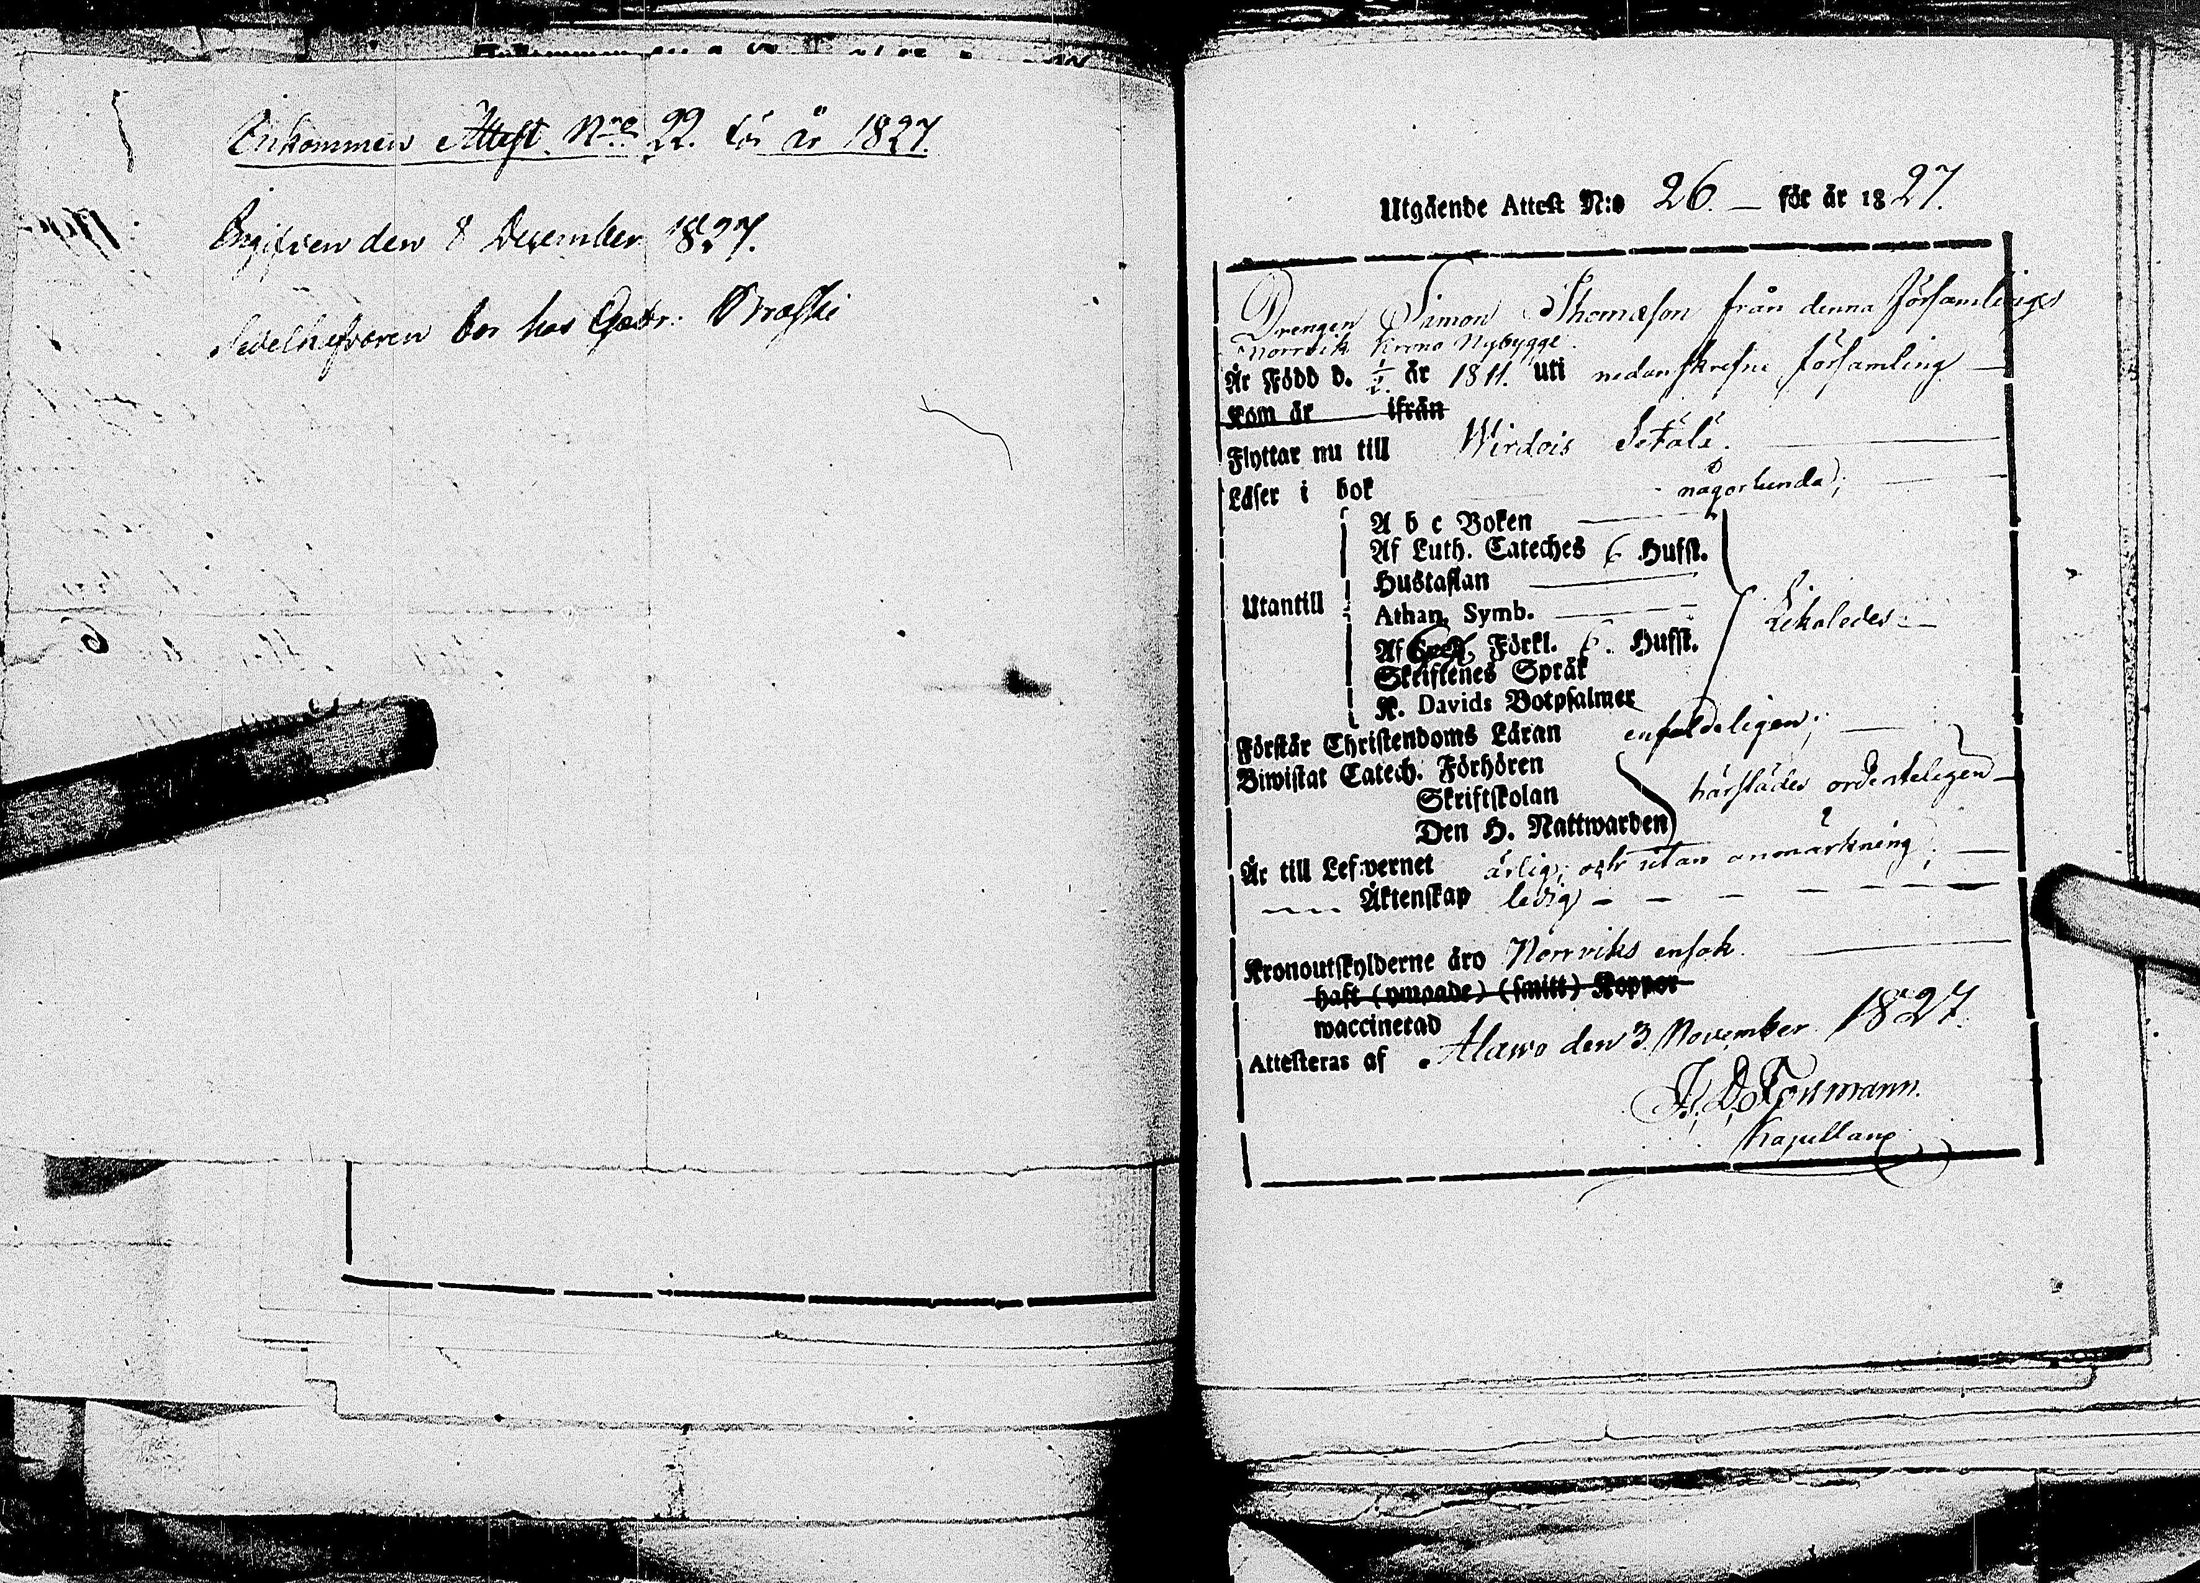 Inkommen Attest N:ro 22. för år 1827.
Ingifven den 8 December 1827.
Sedelhafvaren bor hos
Utgående Attest N:o 26. — för år 1827.
Drengen Simon Thomæson från denna församlings
Norrvik Krono Nybygge.
Är Född d. 1/2. år 1811. uti nedanskrefne församling
Kom år ifrån
Flyttar nu till Wirdois Setälä.
Läser i bok någorlunda;
A b c Boken
Af Luth. Cateches 6 Hufst.
Hustaflan
Utantill
Athan. Symb.
likaledes
Af Förkl. 6. Hufst.
Skriftenes Språk
K. Davids Botpsalmer
Förstår Christendoms Läran enfaldeligen;
Biwistat Catech. Förhören
Skriftskolan
härstädes ordenteligen
Den H. Nattwarden
Är till Lefvernet ärlig; och utan anmärkning;
Äktenskap ledig
Kronoutskylderne äro Norrviks ensak.
haft (ympade) (smitt) Koppor
waccinerad
Attesteras af Alawo den 3 November 1827.
Kapellan